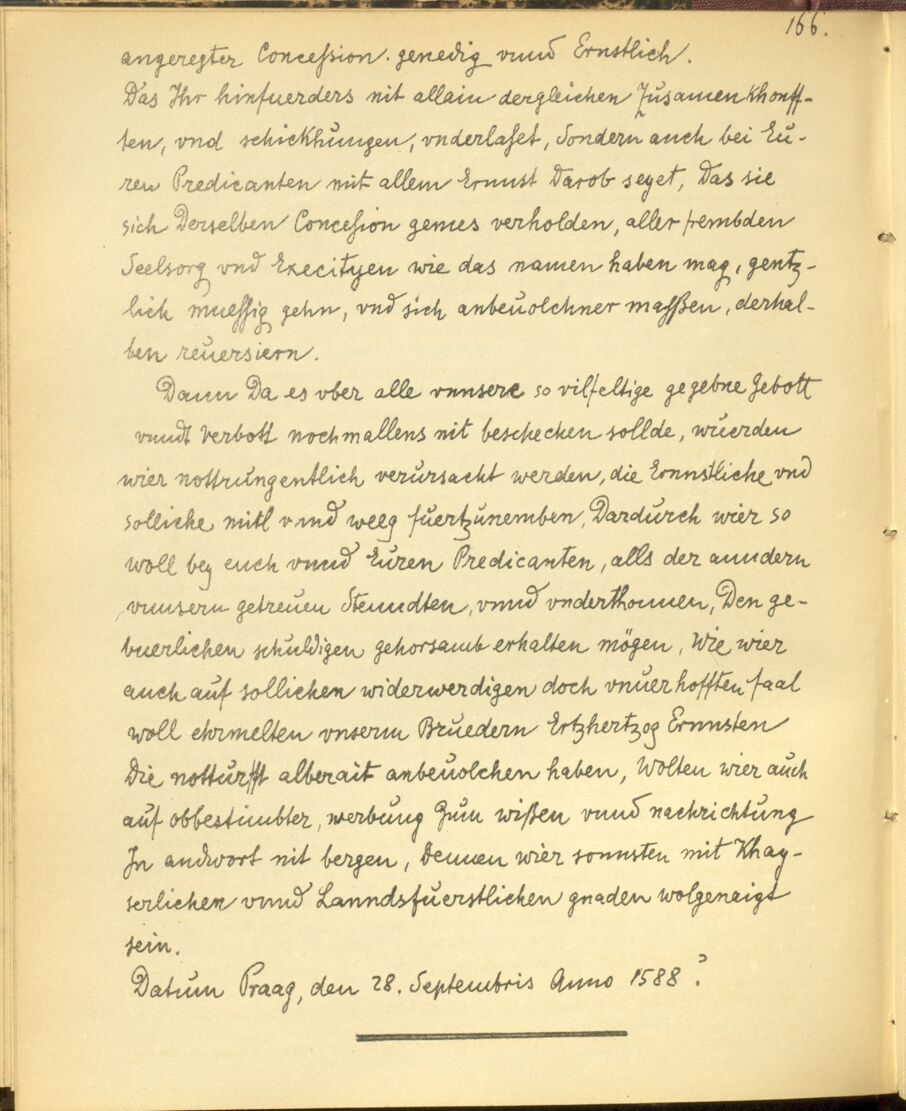 166.
angeregter Concession. genedig vnnd Ernstlich.
Das Ihr hinfuerders nit allain dergleichen Zusamenkhonff-
ten, vnd schickhungen, vnderlaset, Sondern auch bei Eu-
ren Predicanten mit allem Ernnst Darob seyet, Das sie
sich Derselben Concesion gemes verholden, aller frembden
Seelsorg vnd Execityen wie das namen haben mag, gentz-
lich muessig gehn, vnd sich anbeuolchner massen, derhal-
ben reuersiern.
Dann Da es vber alle vnnsere so vilfeltige gegebne Gebott
vnndt Verbott nochmallens nit beschechen sollde, wuerden
wier nottrungentlich verursacht werden, die Ernnstliche vnd
solliche mitl vnnd weeg fuertzunemben, Dardurch wier so
woll bey euch vnnd Euren Predicanten, alls der anndern
vnnsern getreuen Stenndten, vnnd vnderthonnen, Den ge-
buerlichen schuldigen gehorsamb erhalten mögen, Wie wier
auch auf sollichen widerwerdigen doch vnuerhofften faal
woll ehrmelten vnserm Bruedern Ertzhertzog Ernnsten
Die notturfft alberait anbeuolchen haben, Wolten wier auch
auf obbestimbter, werbung Zum wißen vnnd nachrichtung
In andwort nit bergen, Dennen wier sonnsten mit Khay-
serlichen vnnd Lanndsfuerstlichen gnaden wolgeneigt
sein.
Datum Praag, den 28. Septembris Anno 1588 ?